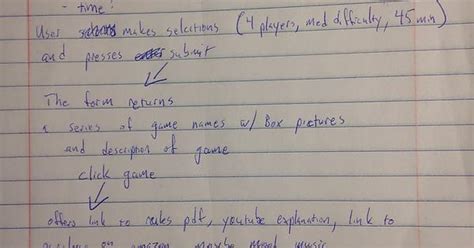 - time?
User makes selections (4 players, med difficulty, 45 min)
and presses submit
The form returns
a series of game names w/ Box pictures
and description of game
click game
offers link to rules pdf, youtube explanation, link to
purchase on amazon, maybe mood music